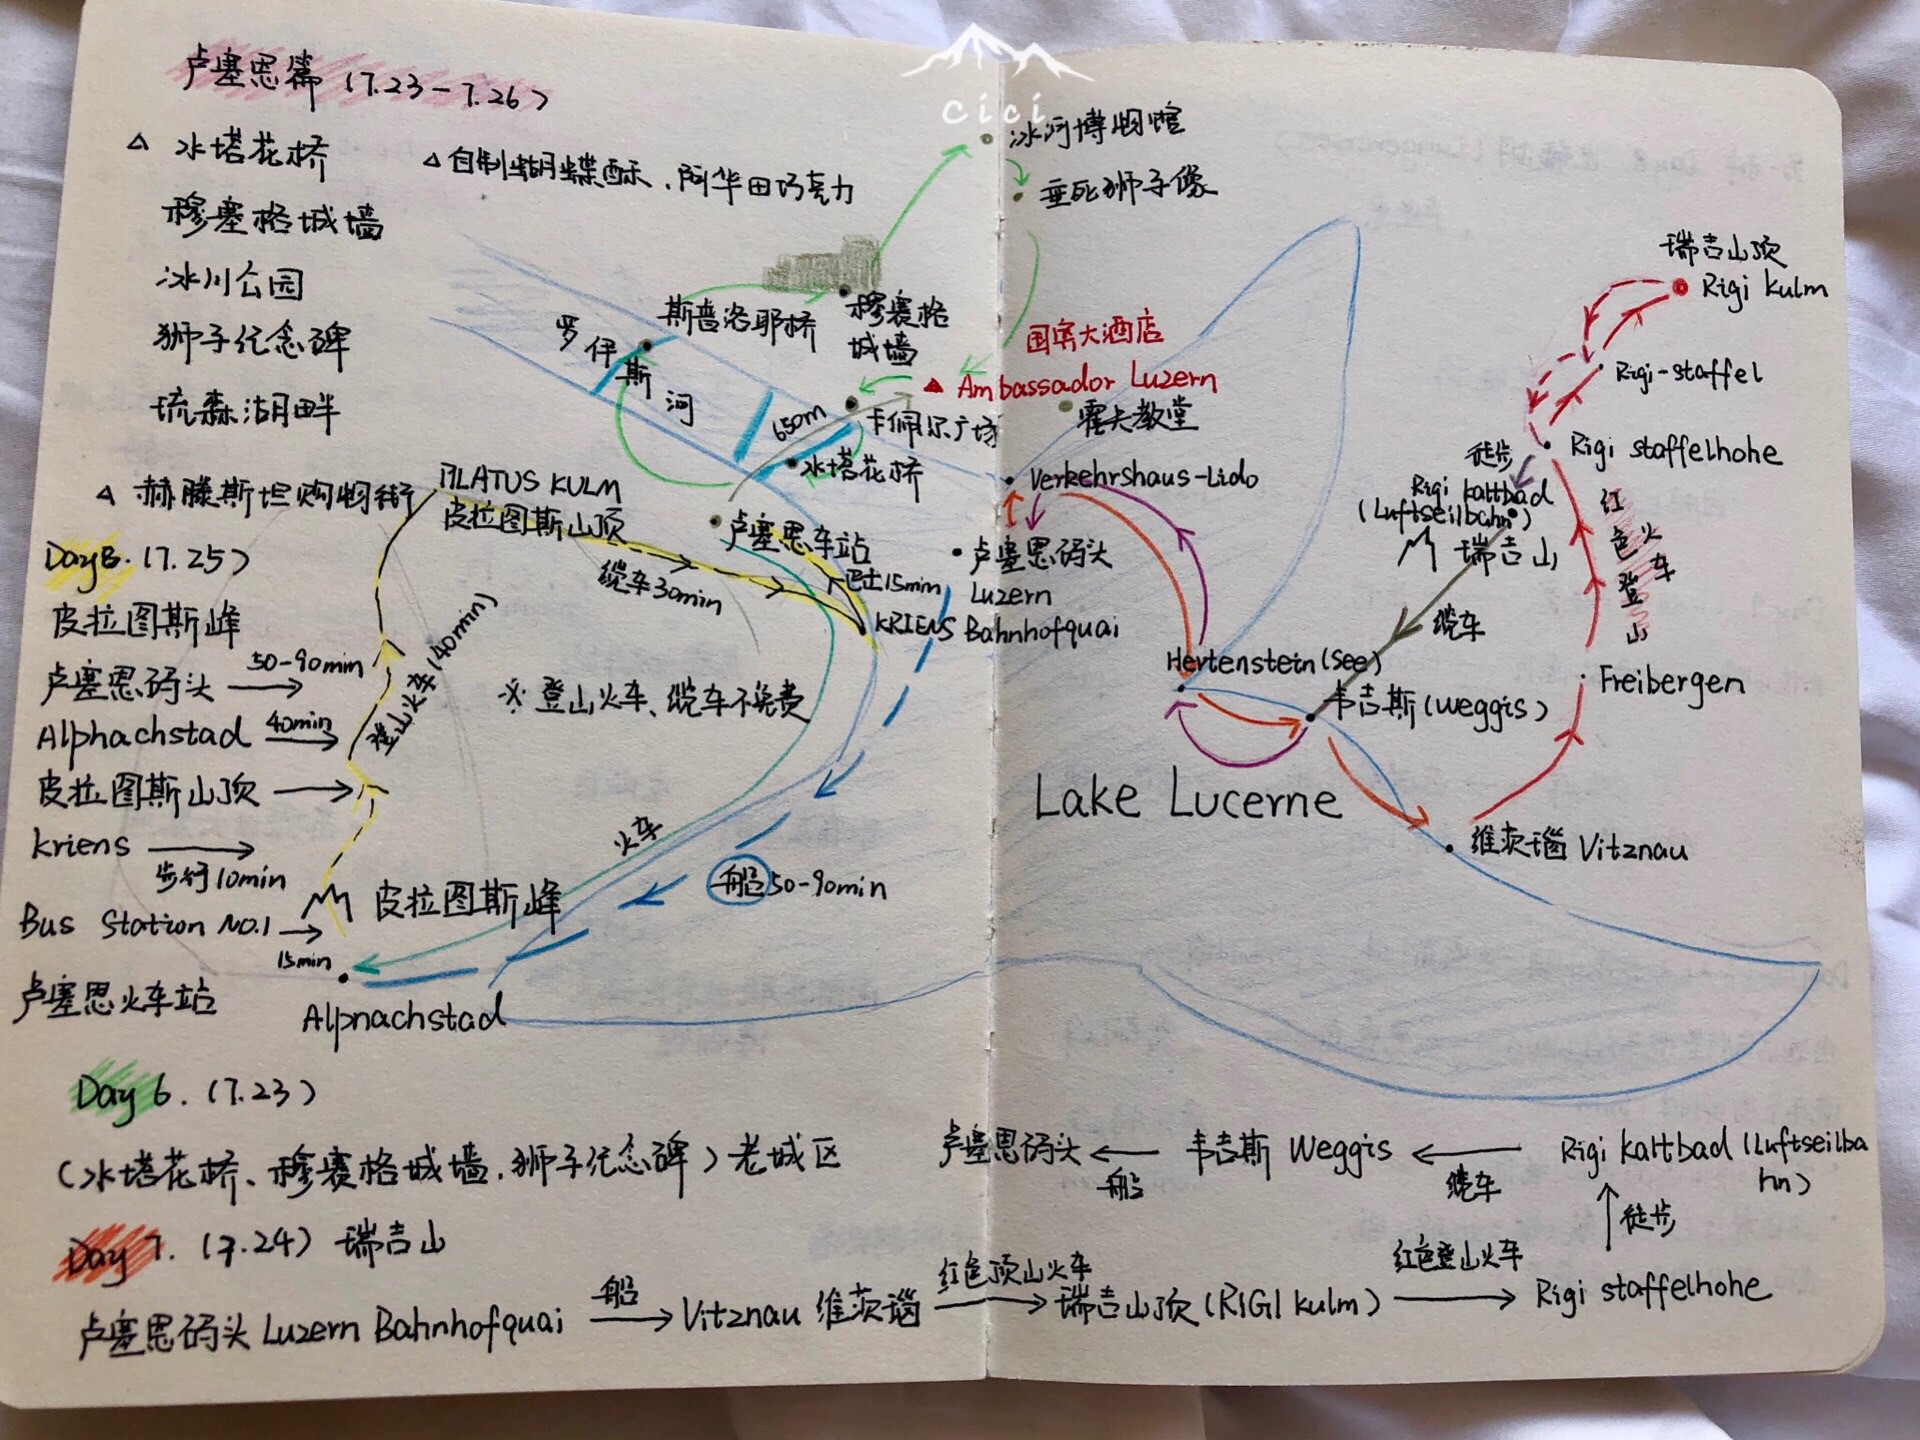 cici
卢塞恩篇 (7.23-7.26)
△ 水塔花桥
穆塞格城墙
冰川公园
狮子纪念碑
琉森湖畔
△ 自制蝴蝶酥、阿华田巧克力
△ 赫滕斯坦购物街
冰河博物馆
垂死狮子像
斯普洛耶桥
穆赛格
城墙
罗伊斯河
650m
卡佩尔广场
水塔花桥
国宾大酒店
Ambassador Luzern
霍夫教堂
Verkehrshaus-Lido
卢塞恩码头
Luzern
Bahnhofquai
卢塞恩车站
巴士15min
KRIENS
PILATUS KULM
皮拉图斯山顶
缆车30min
登山火车(40min)
※ 登山火车、缆车不免费
火车
船 50-90min
皮拉图斯峰
Alpnachstad
Day8. (7.25)
皮拉图斯峰
卢塞恩码头 50-90min →
Alphachstad 40min →
皮拉图斯山顶 →
kriens →
步行10min
Bus Station No.1 →
15min
卢塞恩火车站
瑞吉山顶
Rigi Kulm
Rigi-staffel
Rigi staffelhohe
徒步
Rigi kaltbad
(Luftseilbahn)
瑞吉山
红色登山火车
缆车
Freibergen
Hertenstein(See)
韦吉斯(weggis)
Lake Lucerne
维茨瑙 Vitznau
Day 6. (7.23)
(水塔花桥、穆赛格城墙、狮子纪念碑) 老城区
Day 7. (7.24) 瑞吉山
卢塞恩码头 Luzern Bahnhofquai 船 → Vitznau 维茨瑙 红色顶山火车 → 瑞吉山顶 (RIGI kulm) 红色登山火车 → Rigi staffelhohe
↑ 徒步
卢塞恩码头 ← 船 韦吉斯 Weggis ← 缆车 Rigi kaltbad (Luftseilba
hn)